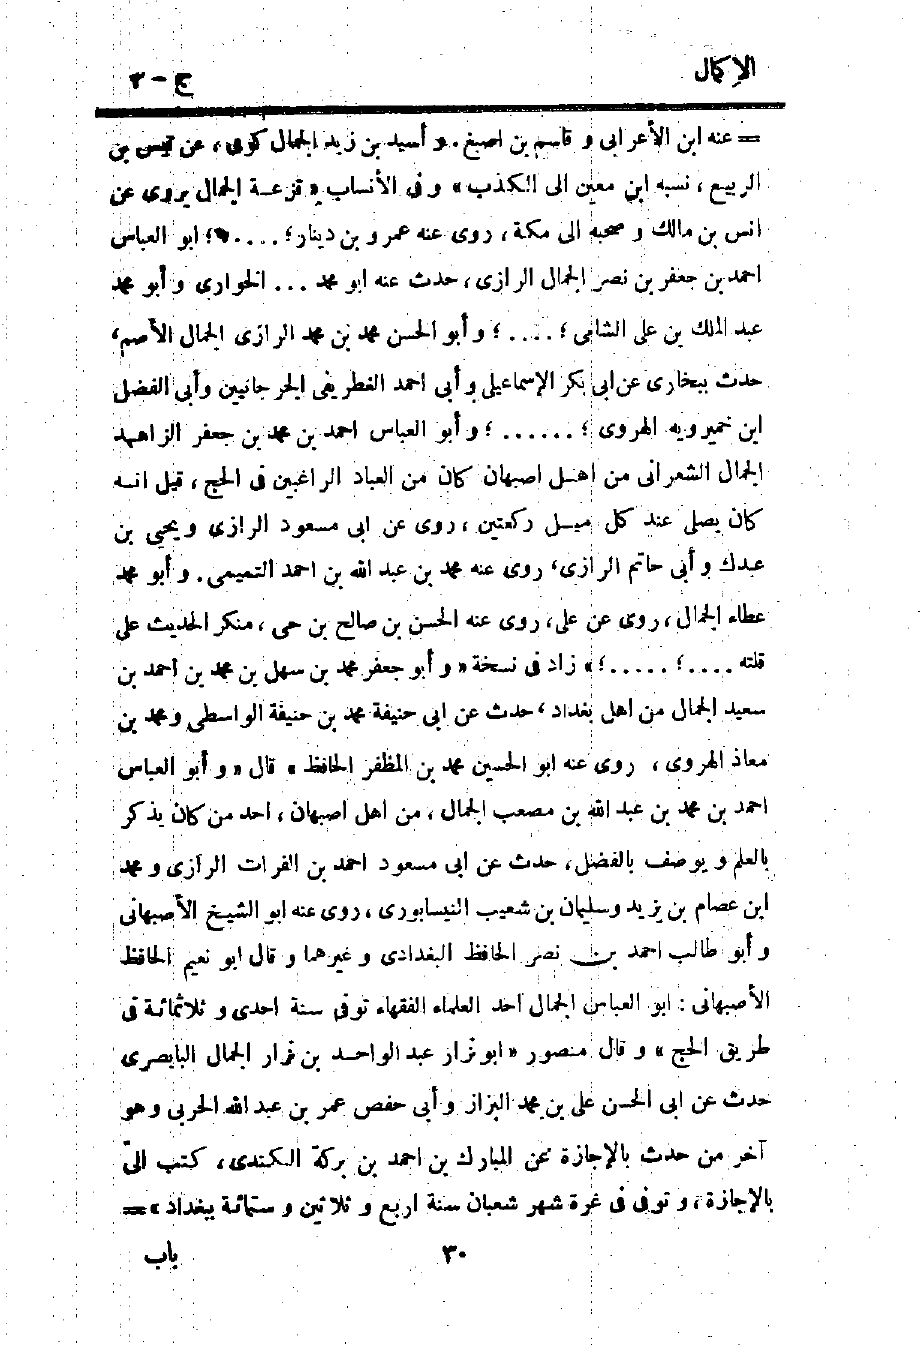 الإكمال
ج - ٣
= عنه ابن الأعرابى و قاسم بن اصبغ . و أسيد بن زيد الجمال كوفى ، عن قيس بن
الربيع ، نسبه ابن معين الى الكذب » و فى الأنساب « قزعة الجمال يروى عن
انس بن مالك و صحبه الى مكة ، روى عنه عمرو بن دينار ؛ .... ؛ ابو العباس
احمد بن جعفر بن نصر الجمال الرازى ، حدث عنه ابو محمد ... الخوارى و أبو محمد
عبد الملك بن على الشامى ؛ .... ؛ و أبو الحسن محمد بن محمد الرازى الجمال الأصم ،
حدث ببخارى عن ابى بكر الإسماعيلى و أبى احمد الغطريفى الجرجانيين وأبى الفضل
ابن خميرويه الهروى ؛ ...... ؛ و أبو العباس احمد بن محمد بن جعفر الزاهد
الجمال الشعرانى من اهل اصبهان كان من العباد الراغبين فى الحج ، قيل انه
كان يصلى عند كل ميل ركعتين ، روى عن ابى مسعود الرازى و يحيى بن
عبدك و أبى حاتم الرازى ، روى عنه محمد بن عبد الله بن احمد التميمى . و أبو محمد
عطاء الجمال ، روى عن على ، روى عنه الحسن بن صالح بن حى ، منكر الحديث على
قلته .... ؛ ..... ؛ » زاد فى نسخة « و أبو جعفر محمد بن سهل بن محمد بن أحمد بن
سعيد الجمال من اهل بغداد ، حدث عن ابى حنيفة محمد بن حنيفة الواسطى و محمد بن
معاذ الهروى ، روى عنه ابو الحسين محمد بن المظفر الحافظ » قال « و أبو العباس
احمد بن محمد بن عبد الله بن مصعب الجمال ، من اهل اصبهان ، احد من كان يذكر
بالعلم و يوصف بالفضل ، حدث عن ابى مسعود احمد بن الفرات الرازى و محمد
ابن عصام بن يزيد وسليمان بن شعيب النيسابورى ، روى عنه ابو الشيخ الأصبهانى
و أبو طالب احمد بن نصر الحافظ البغدادى و غيرهما و قال ابو نعيم الحافظ
الأصبهانى : ابو العباس الجمال احد العلماء الفقهاء توفى سنة احدى و ثلاثمائة فى
طريق الحج » و قال منصور « ابو نزار عبد الواحد بن نزار الجمال البابصرى
حدث عن ابى الحسن على بن محمد البزاز و أبى حفص عمر بن عبد الله الحربى و هو
آخر من حدث بالإجازة عن المبارك بن احمد بن بركة الكندى ، كتب الىّ
بالإجازة ، و توفى فى غرة شهر شعبان سنة اربع و ثلاثين و ستمائة ببغداد » =
٣٠
باب